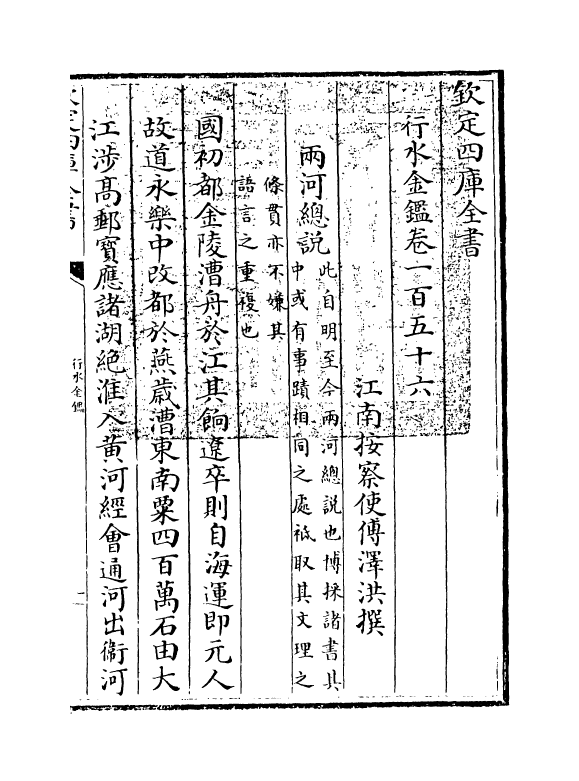 欽定四庫全書
行水金鑑卷一百五十六
江南按察使傅澤洪撰
兩河總説
此自明至今兩河總説也博採諸書其
中或有事蹟相同之處祇取其文理之
條貫亦不嫌其
語言之重複也
國初都金陵漕舟於江其餉遼卒則自海運即元人
故道永樂中改都於燕歲漕東南粟四百萬石由大
江涉髙郵寶應諸湖絶淮入黄河經會通河出衞河
行水金鑑